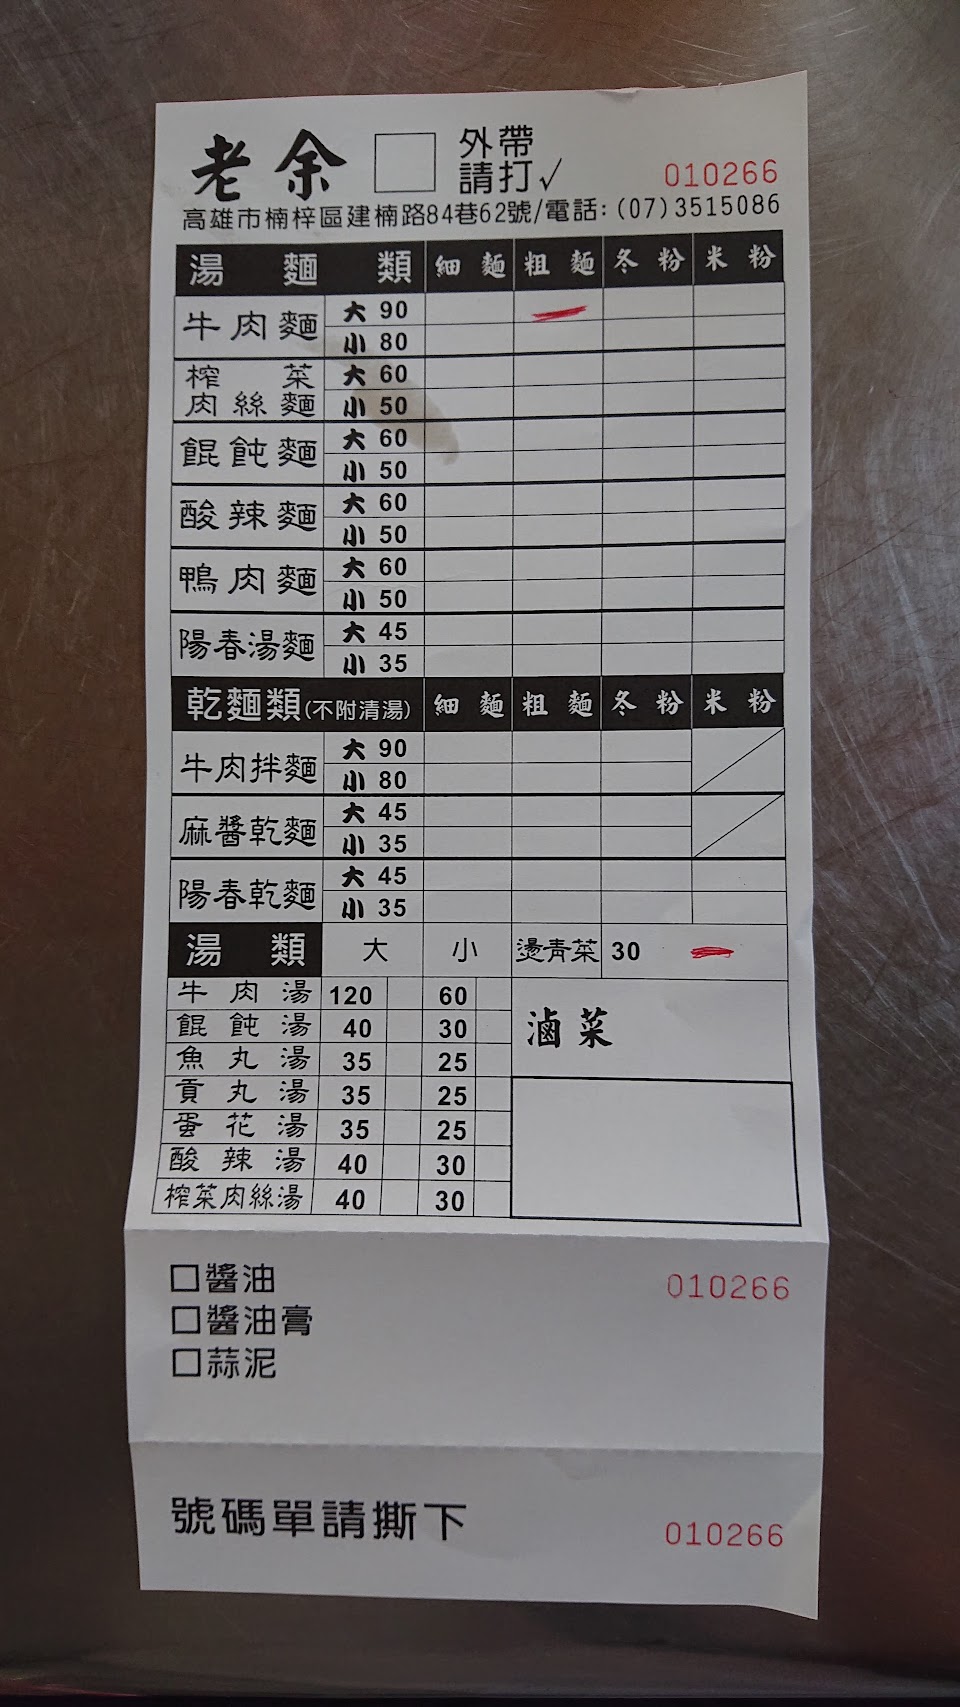 老余 外帶
請打✓ 010266
高雄市楠梓區建楠路84巷62號/電話:(07)3515086
湯麵類 細麵 粗麵 冬粉 米粉
牛肉麵 大 90
小 80
榨菜肉絲麵 大 60
小 50
餛飩麵 大 60
小 50
酸辣麵 大 60
小 50
鴨肉麵 大 60
小 50
陽春湯麵 大 45
小 35
乾麵類(不附清湯) 細麵 粗麵 冬粉 米粉
牛肉拌麵 大 90
小 80
麻醬乾麵 大 45
小 35
陽春乾麵 大 45
小 35
湯類 大 小 燙青菜 30
牛肉湯 120 60
餛飩湯 40 30
魚丸湯 35 25
貢丸湯 35 25
蛋花湯 35 25
酸辣湯 40 30
榨菜肉絲湯 40 30
滷菜
□醬油 010266
□醬油膏
□蒜泥
號碼單請撕下 010266